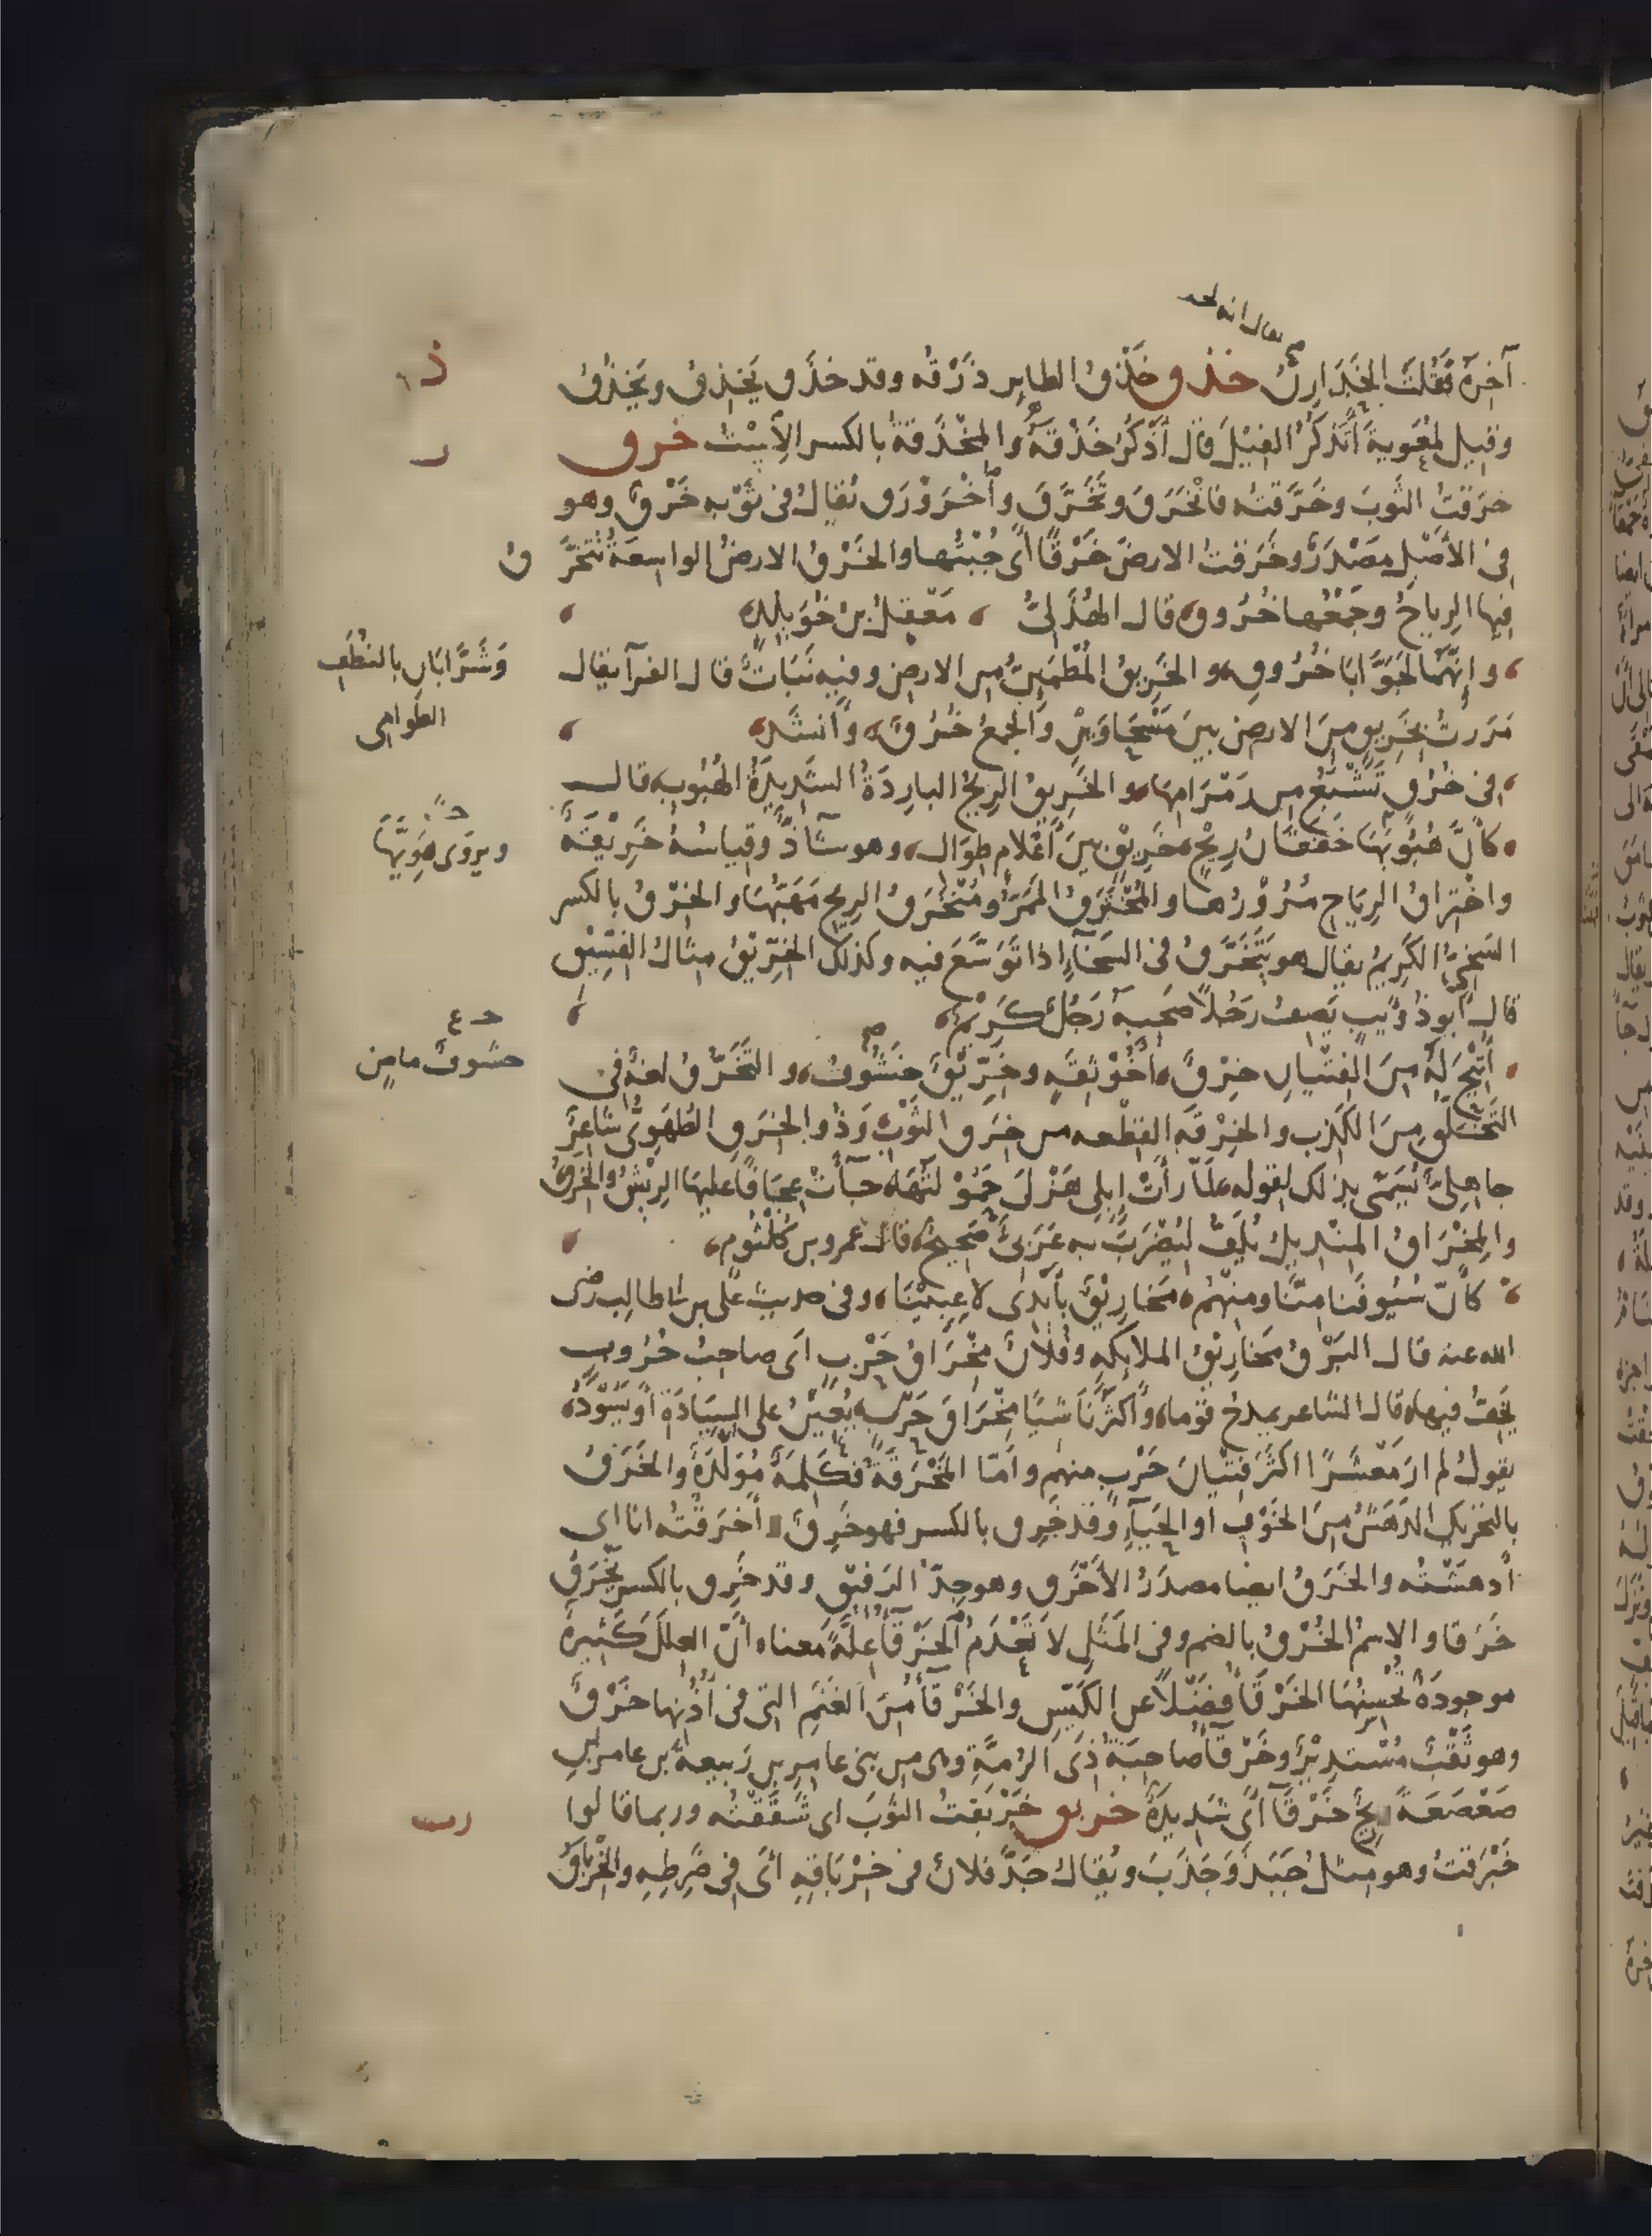 آخِرَهُ فَقُلتَ الخَدَارِنُ خذق خَذْقُ الطايِرِ ذَرْقُه وقد خَذَق يَخْذِق ويَخْذُقُ
وقيل لمُعوية أَتَذْكُرُ الفِيْلَ قال أَذْكُرُ خَذْقَهُ والمِخْذَقَةُ بالكسر الاِسْتُ خرق
خَرَقتُ الثَوبَ وخَرَّقتُه فانْخَرَقَ وتَخَرَّقَ واخْرَوْرَقَ يُقالُ فى ثَوْبِه خَرْقٌ وهو
فى الأَصْلِ مَصْدَرٌ وخَرَقتُ الارضَ خَرْقًا أى جُبْتُها والخَرْقُ الارضُ الواسِعَةُ تَتَخَرَّ قُ
فيها الرِياحُ وجَمْعُها خُرُوقٌ قال الهُذَلِىُّ مَعْقِلُ بنُ خُوَيْلِدٍ
وإنَّهُما لَجَوَّابَا خُرُوقٍ والخَرِيقُ المُطْمَئِنُّ من الارضِ وفيه نَبَاتٌ قال الفرآ يقال
وَشَرَّابَانِ بِالنُطَفِ
الطَوامِى
مَرَرتُ بِخَرِيقٍ مِنَ الارضِ بينَ مَسْحَاوَيْنِ والجَمعُ خُرُقٌ وأنشَدَ
فى خُرُقٍ تَشْبَعُ مِن رَمْرَامِهَا والخَرِيقُ الرِيحُ البارِدَةُ الشَدِيدَةُ الهُبُوبِ قال
كأنَّ هُبُوبَهَا خَفَقَانُ رِيْحٍ خَرِيْقٍ بينَ أَعْلامٍ طِوَالِ وهو شَاذٌّ وقياسُهُ خَرِيْقَةٌ
ويروَى هَوِيَّهَا
واخْتِرَاقُ الرِيَاحِ مُرُوْرُها والمُخْتَرَقُ المَمَرُّ ومُنْخَرَقُ الرِيحِ مَهَبُّهَا والخِرْقُ بالكسر
السَخِىُّ الكَرِيمُ يقال هو يَتَخَرَّقُ فى السَخآءِ اذا تَوَسَّعَ فيه وكذلك الخِرِّيْقُ مِثالُ الفِسِّيْقِ
قال أبوذُؤَيبٍ يَصِفُ رَجُلاً صَحِبَهُ رَجُلٌ كَرِيْمٌ
أُتِيْحَ لَهُ مِنَ الفِتْيانِ خِرْقٌ أَخُوْ ثِقَةٍ وخِرِّيْقٌ خَشُوفُ والتَخَرُّقُ لغةٌ فى
التَخَلُّقِ مِنَ الكَذِبِ والخِرْقَةُ القِطْعه من خِرَقِ الثَوْبِ وَذُو الخِرَقِ الطُهَوِىُّ شَاعِرٌ
جاهِلىٌّ سُمِّىَ بذلك لقوله لمّا رَأَتْ إبِلِى هَزْلَى حَمُوْلَتُهَا جآءَتْ عِجَافًا عليهَا الرِيْشُ والخِرَقُ
والمِخْرَاقُ المِنْدِيلُ يُلَفُّ ليُضْرَبَ بِهِ عَرَبىٌّ صَحيحٌ قال عمرو بن كُلْثُوم
كأنّ سُيُوفَنا مِنَّا ومِنْهُم مَخارِيْقٌ بأَيْدِى لاعِبِيْنَا وفى حديث علّى بن ابى طالِب رضى
الله عنه قال البَرْقُ مَخارِيْقُ الملايكةِ وفُلانٌ مِخْرَاقُ حَرْبٍ أى صاحِبُ حُرُوبٍ
يَخِفُّ فيها قال الشاعر يمدح قوما وأَكْثَرَ نَاشِيًا مِخْرَاقَ حَرْبٍ يُعِيْنُ على السِيَادَةِ أَو يَسُوْدُ
يقولُ لم ارَ مَعْشَرًا اكثَرَ فِتْيَانَ حَرْبٍ منهم وأمّا المَخْرَقَةُ فكَلِمَةٌ مُوَلَّدَةٌ والخَرَقُ
بالتحريكِ الدَهَشُ مِنَ الخَوْفِ أو الحَيآءِ وقد خَرِقَ بالكسر فهو خَرِقٌ أخْرَقْتُه انا اى
أدهَشْتُه والخَرَقُ ايضا مصدَرُ الأَخْرَقِ وهو ضِدُّ الرَفِيْقِ وقد خَرِقَ بالكسر يَخْرَقُ
خَرَقا والاسمُ الخُرْقُ بالضم وفى المَثَلِ لا تَعْدَمُ الخَرْقآءُ عِلَّةً معناه أنَّ العِلَلَ كَثِيرةٌ
موجودَةٌ تُحْسِنُهَا الخَرْقآءُ فَضْلاً عن الكَيِّسِ والخَرْقآءُ مِنَ الغَنَمِ التى فى أُذُنِها خَرْقٌ
وهو ثَقْبٌ مُسْتَدِيْرٌ وخَرْقآءُ صاحِبَةُ ذِى الرُمَّةِ وهى من بنى عامِرِ بنِ رَبيعةَ بن عامر بنِ
صَعْصَعَةَ رِيحٌ خَرْقآءُ أى شَدِيدَةٌ خربق خَرْبَقتُ الثَوبَ اى شَقَّقْتُه وربما قالوا
خَبْرَقتُ وهو مثل جَبَذَ وَجَذَبَ ويُقالُ جَدَّ فلانٌ فى خِرْبَاقِهِ أى فى ضَرِطِهِ والخِرْبَاقُ